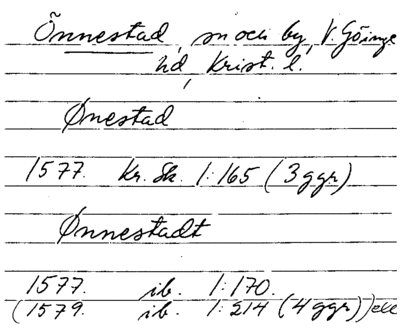 Önnestad, sn och by, V. Göinge
hd, Krist. l.
Ønestad
1577. Kr. Sk. 1:165 (3 ggr)
Ønnestadt
1577. ib. 1:170.
(1579. ib. 1:214 (4 ggr))